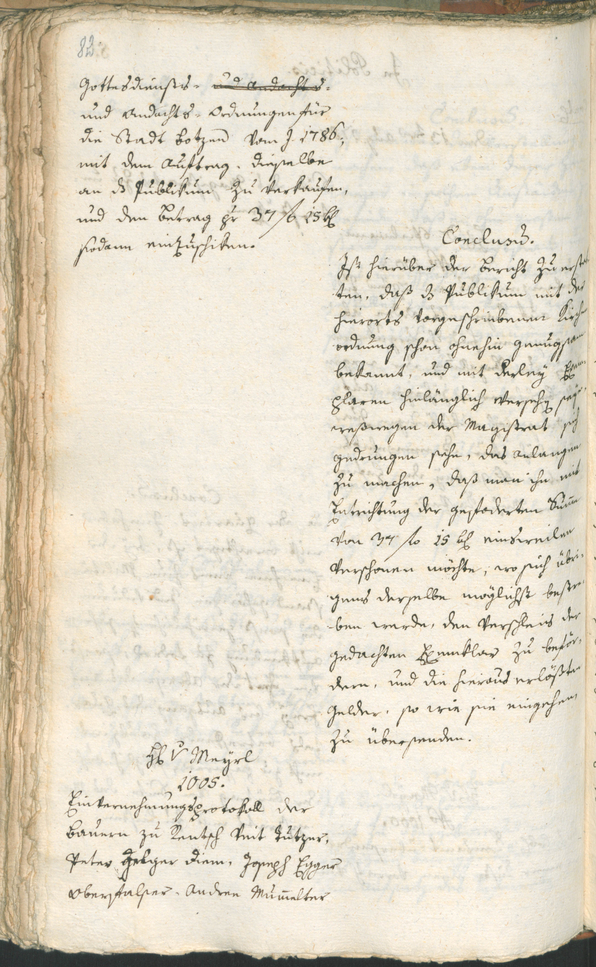 82.
Gottesdiensts- und Andachts-
und Andachts-Ordnungen für
die Stadt Botzen vom J. 1786,
mit dem Auftrag, dieselbe
an ds Publikum zu verkaufen,
und den Betrag pr 37 f 15 kr
sodann einzuschiken.
Conclusũ.
Ist hierüber der Bericht zu erstat-
ten, daß ds Publikum mit der
hierorts vorgeschriebenen Kirchen
ordnung schon ohnehin genugsam
bekannt, und mit derley Exem
plaren hinlänglich versehen seye,
weßwegen der Magistrat sich
gedrungen sehe, das Anlangen
zu machen, daß man ihn mit
Entrichtung der geforderten Sum̃
von 37 f 15 kr einsweilen
verschonen möchte, wo sich übri-
gens derselbe möglichst bestre-
ben werde, den Verschleis der
gedachten Exemplar zu beför-
dern, und die hieraus erlößten
Gelder, so wie sie eingehen,
zu übersenden.
H v Meyrl
1005.
Einvernehmungsprotokoll der
Bauern zu Rentsch Veit Tutzer,
Peter Diem, Joseph Egger
Oberpfalser, Andree Mum̃elter